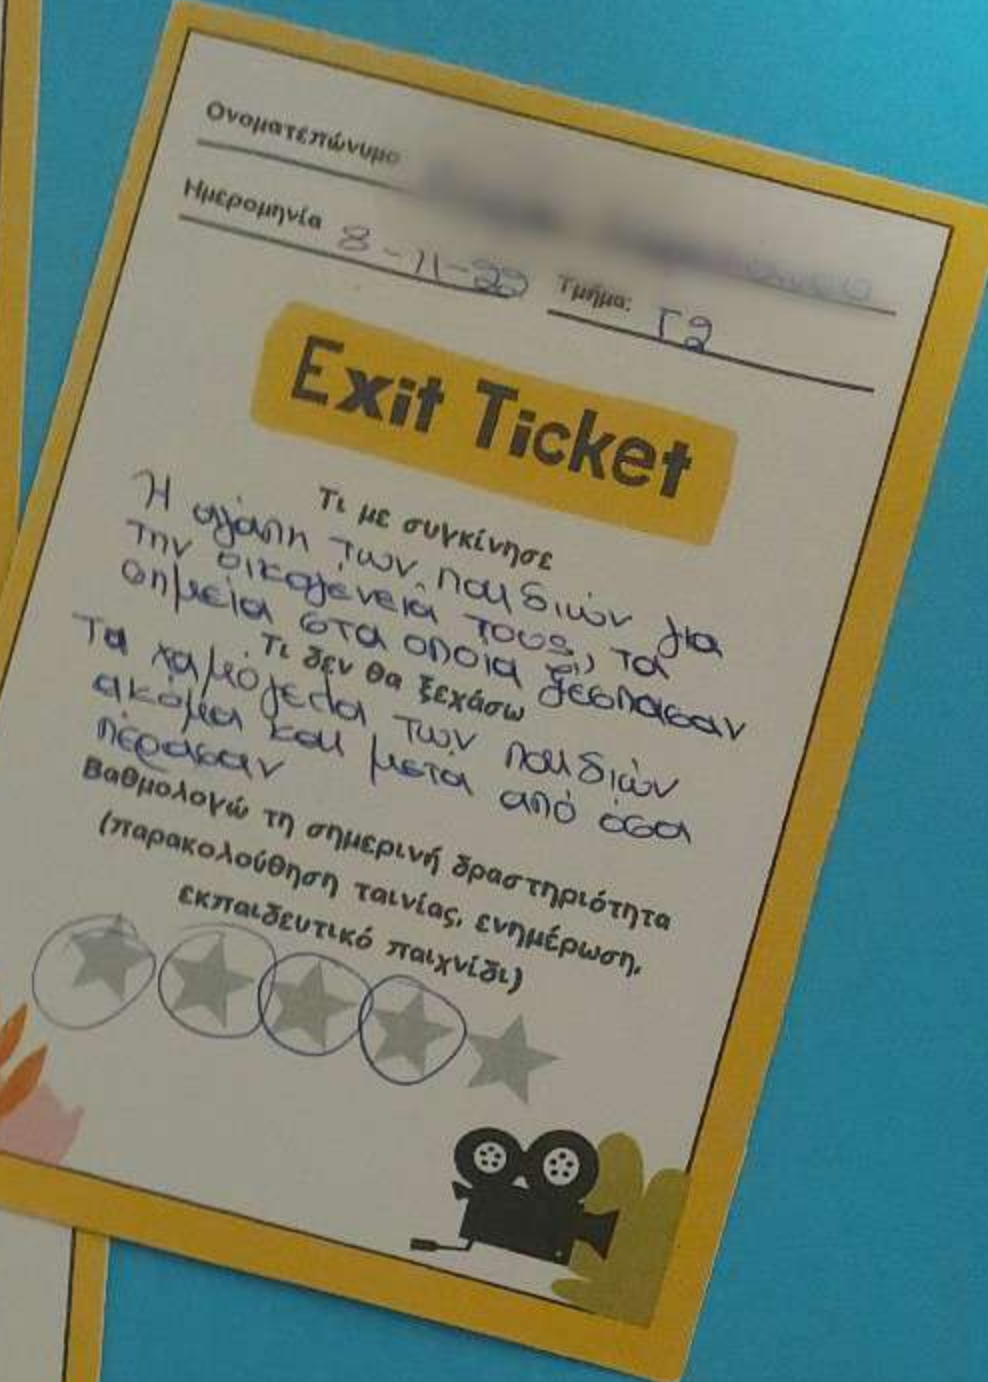 Ονοματεπώνυμο
Ημερομηνία 8-11-22 Τμήμα: Γ2
Exit Ticket
Τι με συγκίνησε
Η αγάπη των παιδιών για
την οικογένειά τους, τα
σημεία στα οποία ξέσπασαν
Τι δεν θα ξεχάσω
Τα χαμόγελα των παιδιών
ακόμα και μετά από όσα
πέρασαν
Βαθμολογώ τη σημερινή δραστηριότητα
(παρακολούθηση ταινίας, ενημέρωση,
εκπαιδευτικό παιχνίδι)